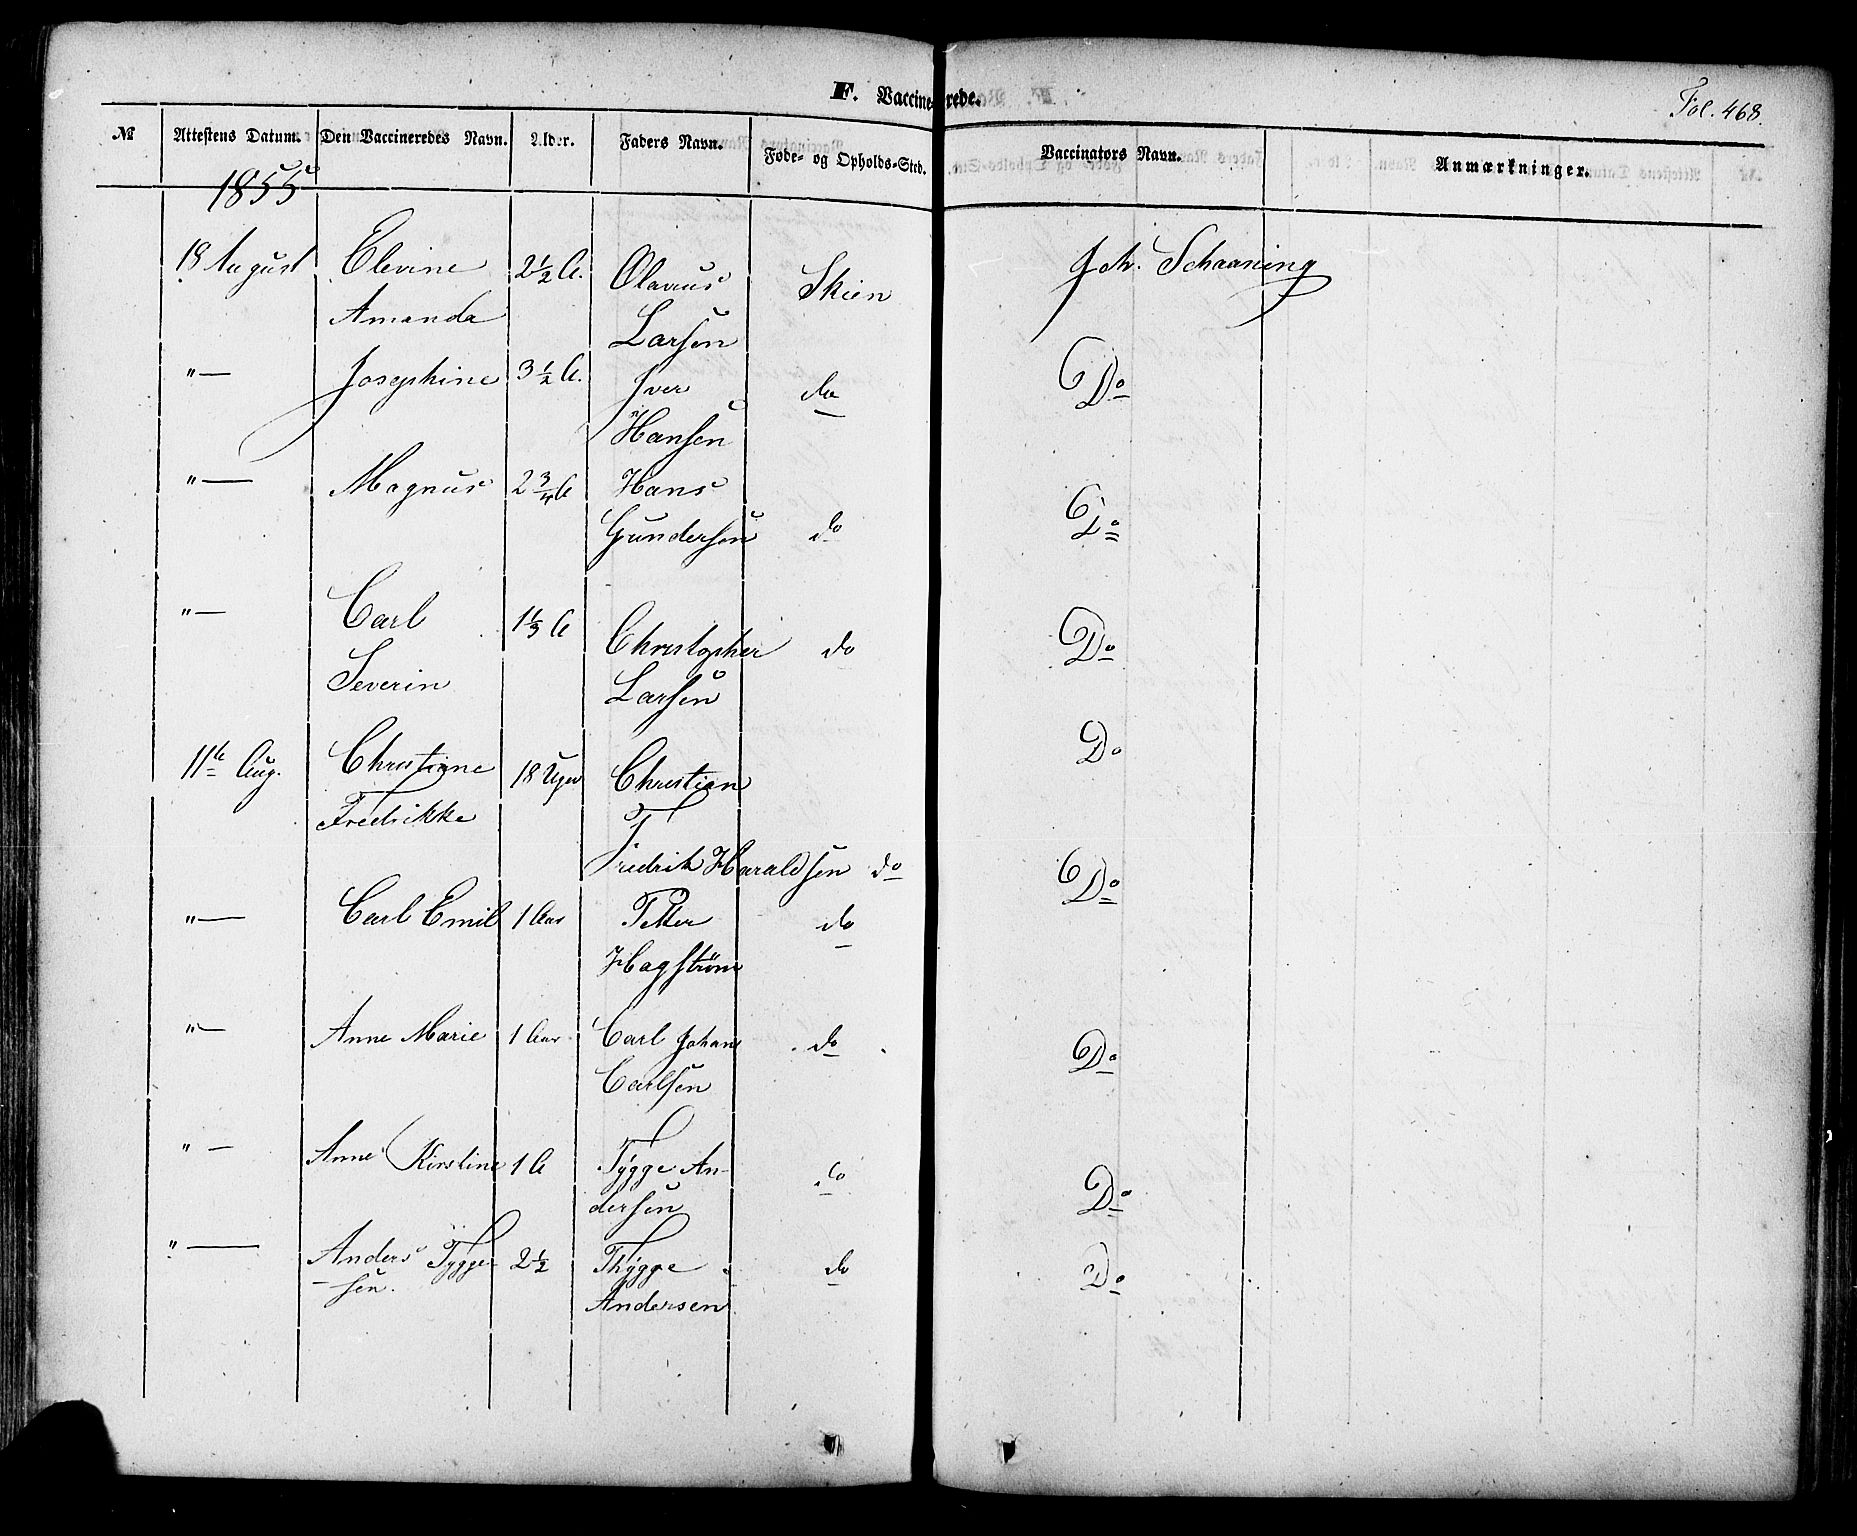 F. Vaccinerede.
Fol. 468.
№ Attestens Datum. Den Vaccineredes Navn. Alder. Faders Navn. Føde- og Opholds-Sted. Vaccinators Navn. Anmærkninger.
1855
18 August Elevine 2½ A. Olavus Skien Joh. Schaaning
Amanda Larsen
"— Josephine 3½ A. Iver do Do
Hansen
"— Magnus 2¾ A Hans
Gundersen do Do
"— Carl 1⅓ A Christopher do Do
Severin Larsen
11te Aug. Christiane 18 Uger Christian Do
Fredrikke Fredrik Haraldsen do
"— Carl Emil 1 Aar Petter do Do
Hagstrøm
"— Anne Marie 1 Aar Carl Johan do Do
Carlsen
"— Anne Kirstine 1 A Tygge An- do Do
dersen
"— Anders Tygge- 2½ Thygge do Do
sen. Andersen